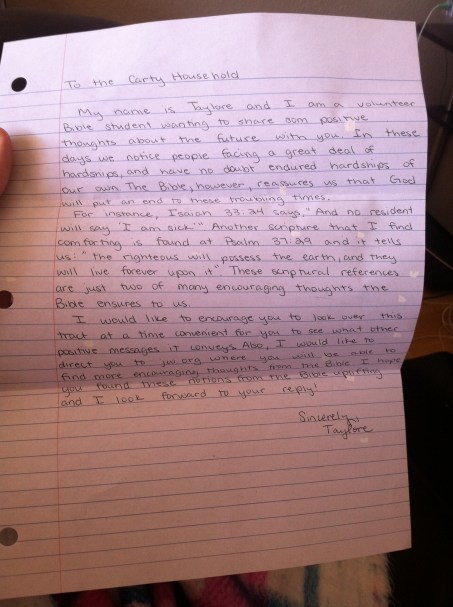 To the Carty Household
My name is Taylore and I am a volunteer
Bible student wanting to share som positive
thoughts about the future with you. In these
days we notice people facing a great deal of
hardships, and have no doubt endured hardships of
our own. The Bible, however, reassures us that God
will put an end to these troubling times.
For instance, Isaiah 33:24 says, "And no resident
will say 'I am sick'" Another scripture that I find
comforting is found at Psalm 37:29 and it tells
us: "the righteous will possess the earth, and they
will live forever upon it" These scriptural references
are just two of many encouraging thoughts the
Bible ensures to us.
I would like to encourage you to look over this
tract at a time convenient for you to see what other
positive messages it conveys. Also, I would like to
direct you to jw.org where you will be able to
find more encouraging thoughts from the Bible. I hope
you found these notions from the Bible uplifting
and I look forward to your reply!
Sincerely,
Taylore